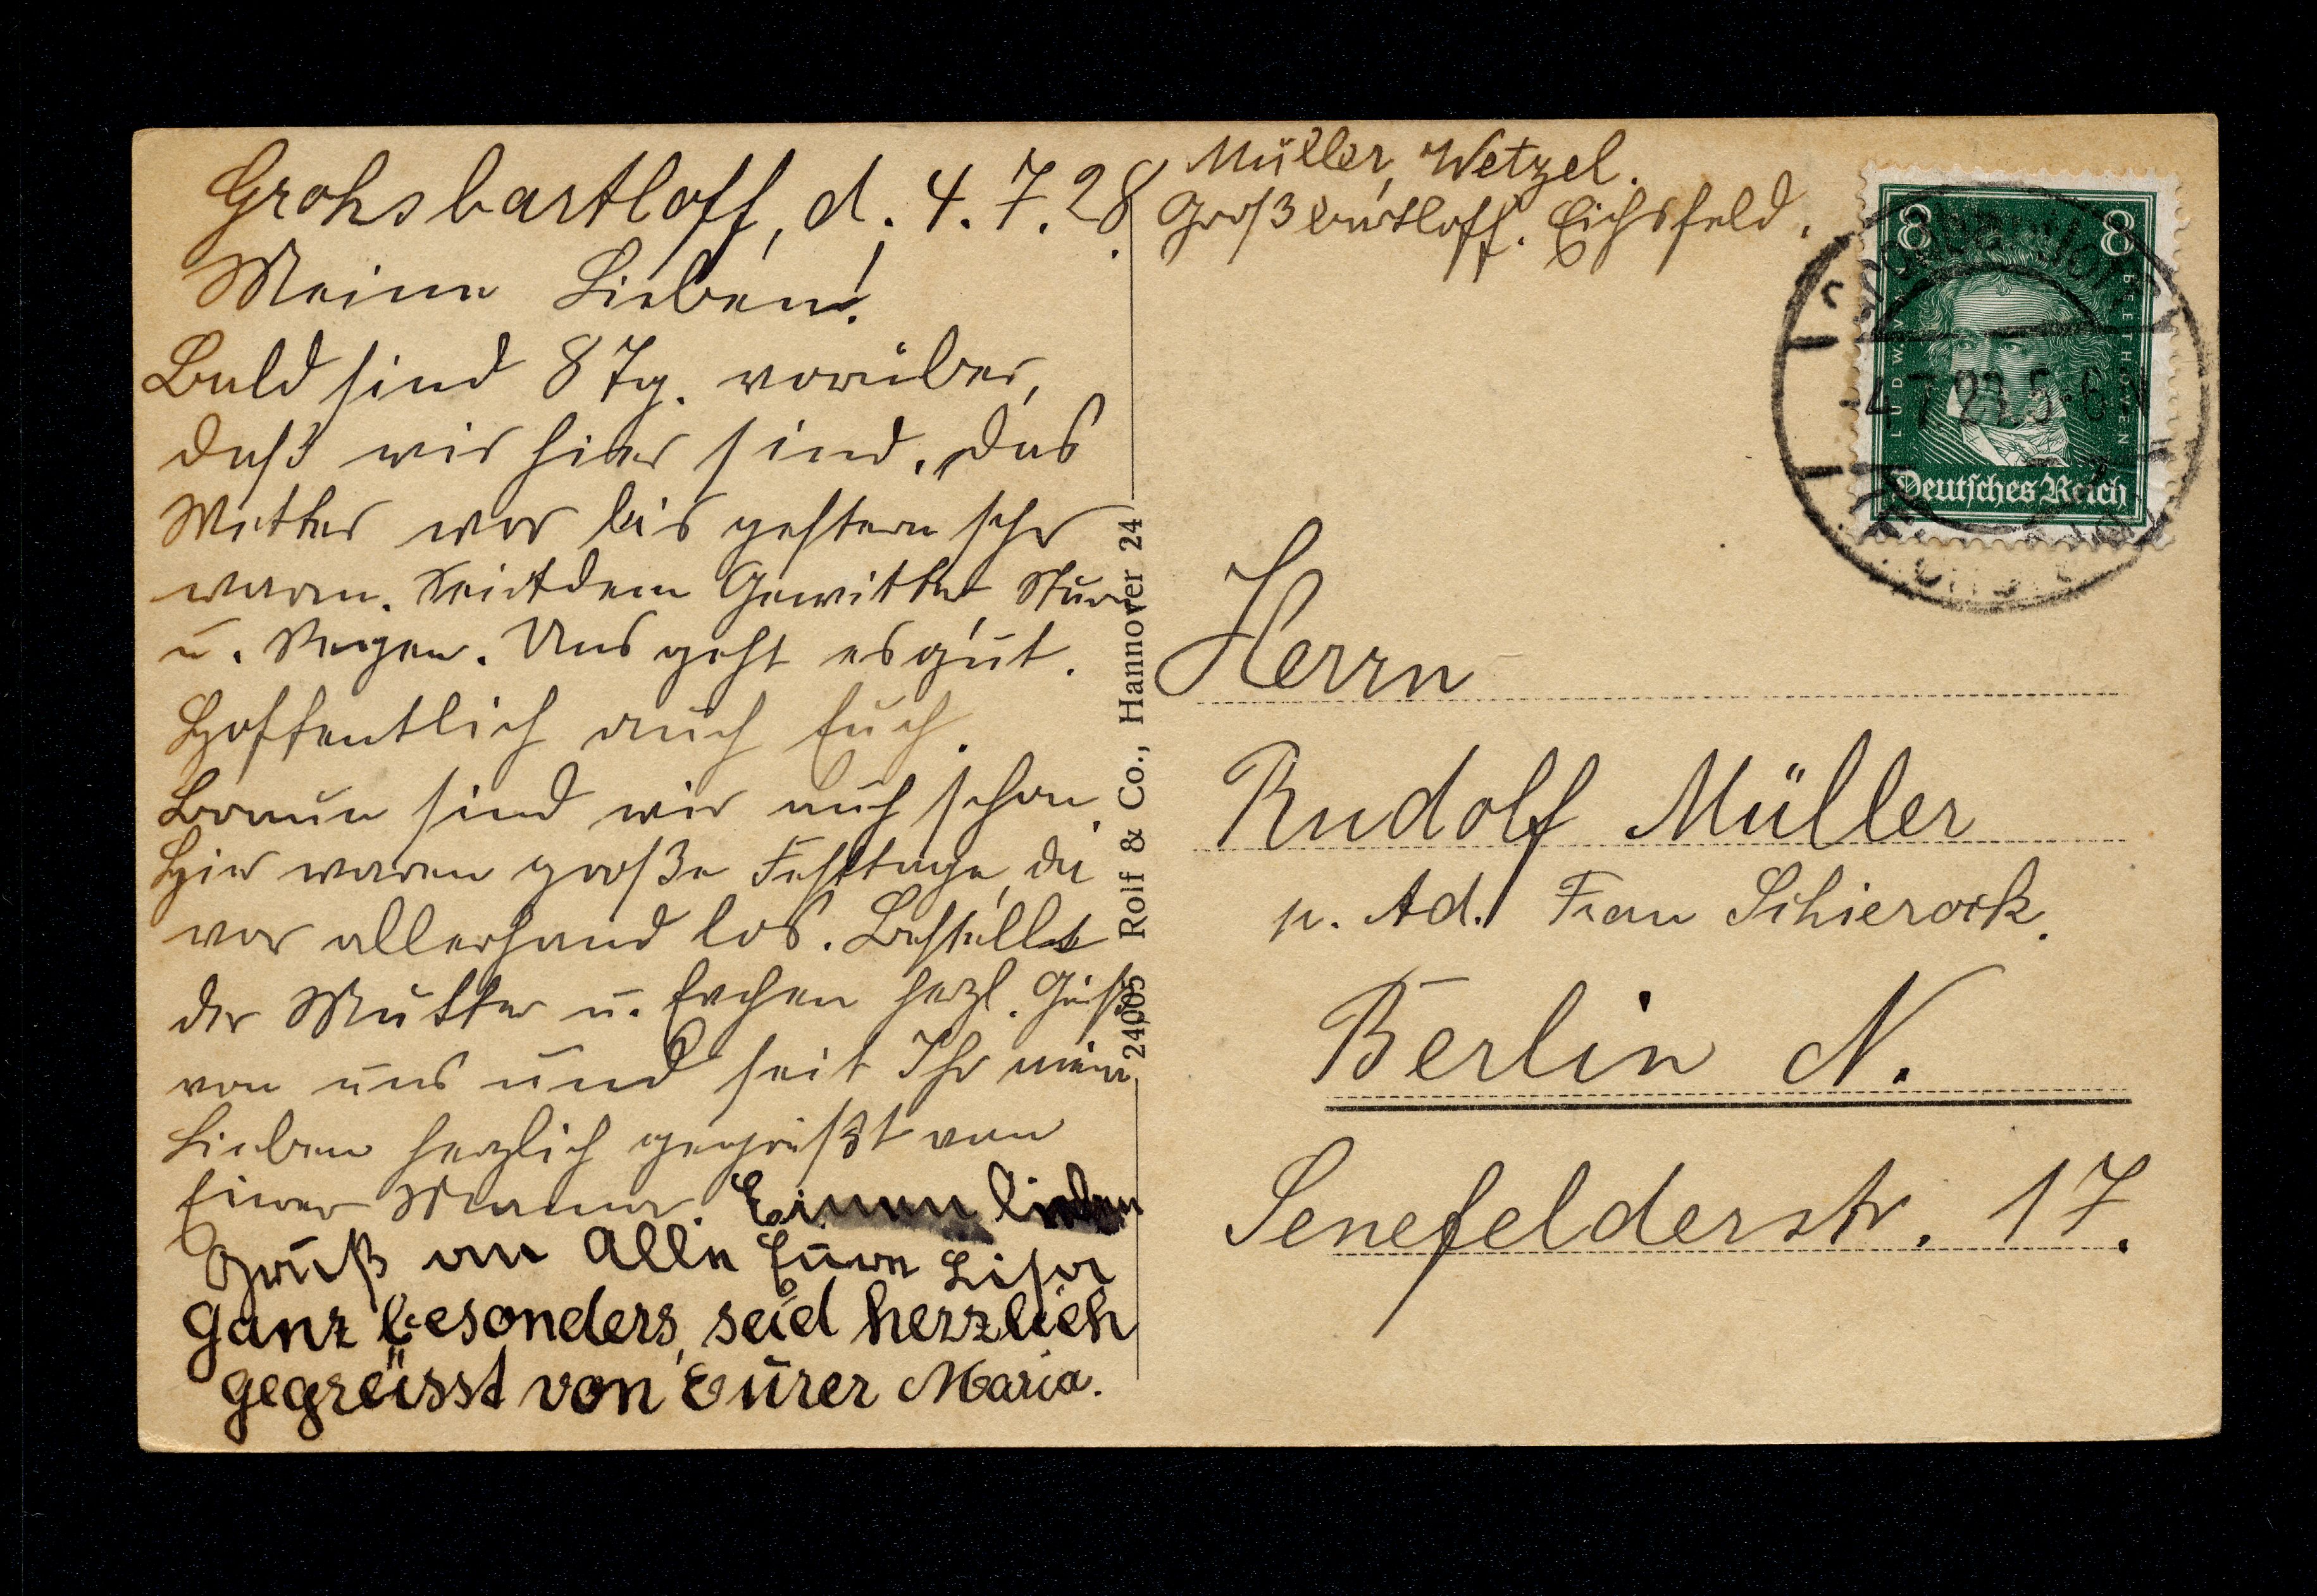 Grohsbartloff, d. 4. 7. 28.
Meine Lieben!
Bald sind 8 Tg. vorüber,
daß wir hier sind. Das
Wetter war bis gestern sehr
warm. Seitdem Gewitter, Sturm
u. Regen. Uns geht es gut.
Hoffentlich auch Euch.
Braun sind wir auch schon.
Hier waren große Festtage, da
war allerhand los. Bestellt
der Mutter u. Evchen herzl. Grüße
von uns und seit Ihr meine
Lieben herzlich gegrüßt von
Eurer Mama. Einen lieben
Gruß an Alle Eure Lisa
Ganz besonders, seid herzlich
gegrüsst von Eurer Maria.
24005 Rolf & Co., Hannover 24
Müller, Wetzel.
Großbartloff. Eichsfeld.
8 8
LUDWIG V. BEETHOVEN
Deutsches Reich
4.7.28.5-6N
Herrn
Rudolf Müller
p. Ad. Frau Schierock.
Berlin N.
Senefelderstr. 17.